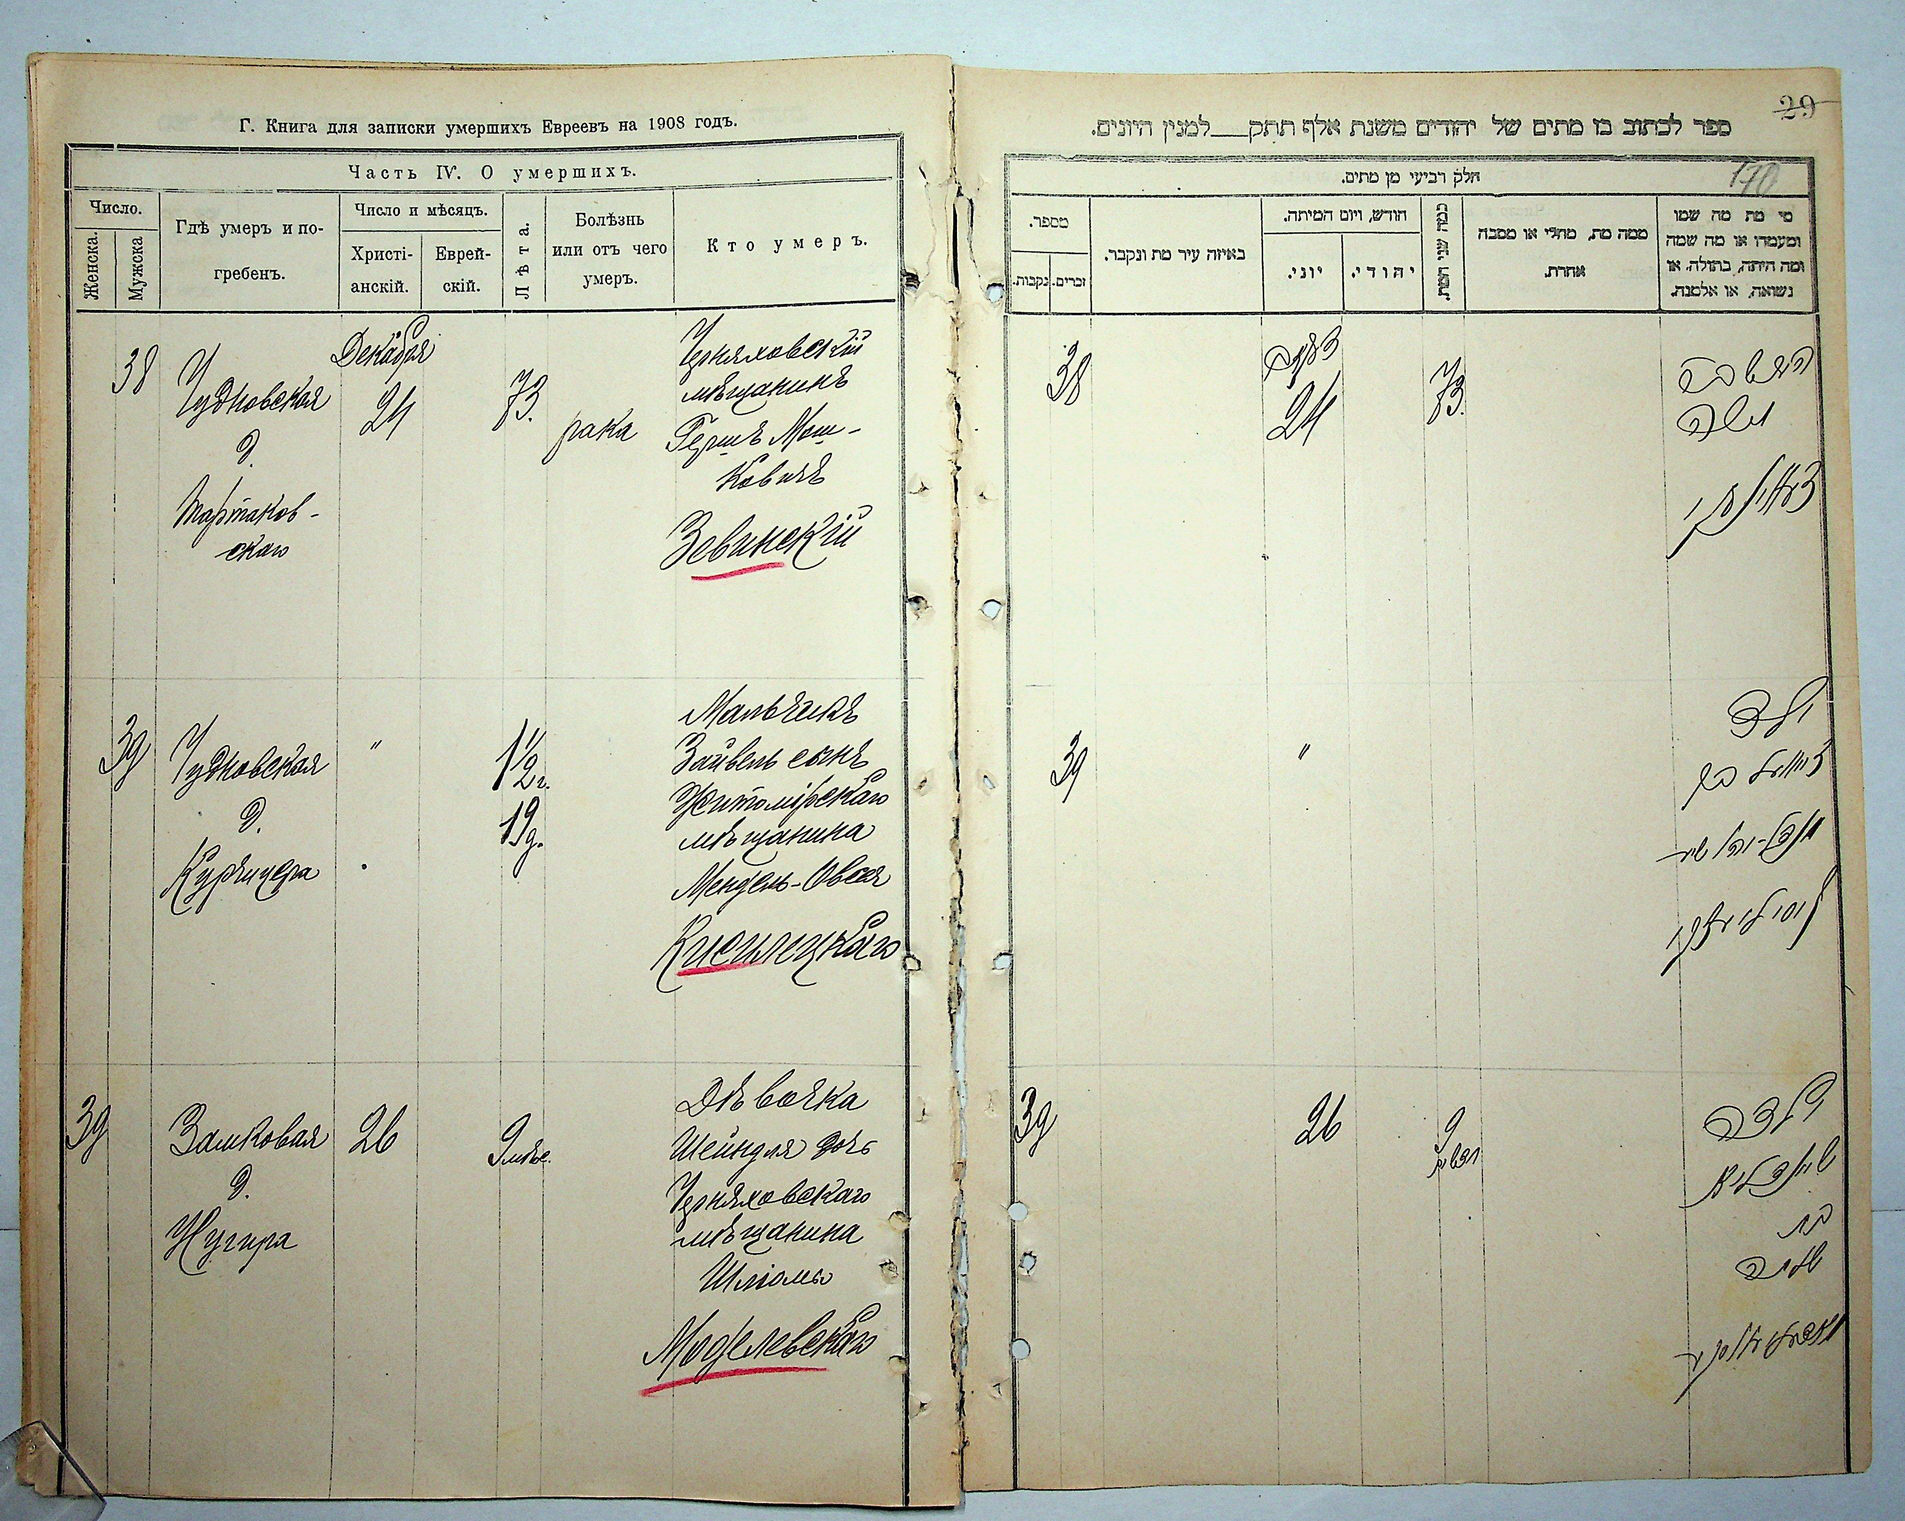 Г. Книга для записки умершихъ Евреевъ на 1908 годъ.
Часть IV. О умершихъ.
Число.
Женска.
Мужска
Гдѣ умеръ и по-
гребенъ.
Число и мѣсяцъ.
Христі-
анскій.
Еврей-
скій.
Лѣта.
Болѣзнь
или отъ чего
умеръ.
Кто умеръ.
38
Чудновская
д.
Партаков-
скаго
Декабря
24
73.
рака
Черняховскій
мѣщанинъ
Гершъ Мош-
ковичъ
Зевинскій
39
Чудновская
д.
"
1½ г.
19 д.
Мальчикъ
Зайвель сынъ
Житомірскаго
мѣщанина
Мендель-Овсея
Кисилецкаго
39
Замковая
д.
26
9 мѣс.
Дѣвочка
Шейндля дочь
Черняховскаго
мѣщанина
Шліомы
Моделевскаго
29
ספר לכתוב בו מתים של יהודים משנת אלף תתק למנין היונים.
170
חלק רביעי מן מתים.
מספר.
זכרים.
נקבות.
באיזה עיר מת ונקבר.
חודש, ויום המיתה.
יוני.
יהודי.
כמה שני המת.
ממה מת, מחלי או מסבה
אחרת.
מי מת מה שמו
ומעמדו או מה שמה
ומה היתה, בתולה, או
נשואה, או אלמנה.
38
24
73.
הירש בר
משה
39
"
ילד
זייוויל בר
39
26
9
ילדה
שיינדליא
בת
שלמה